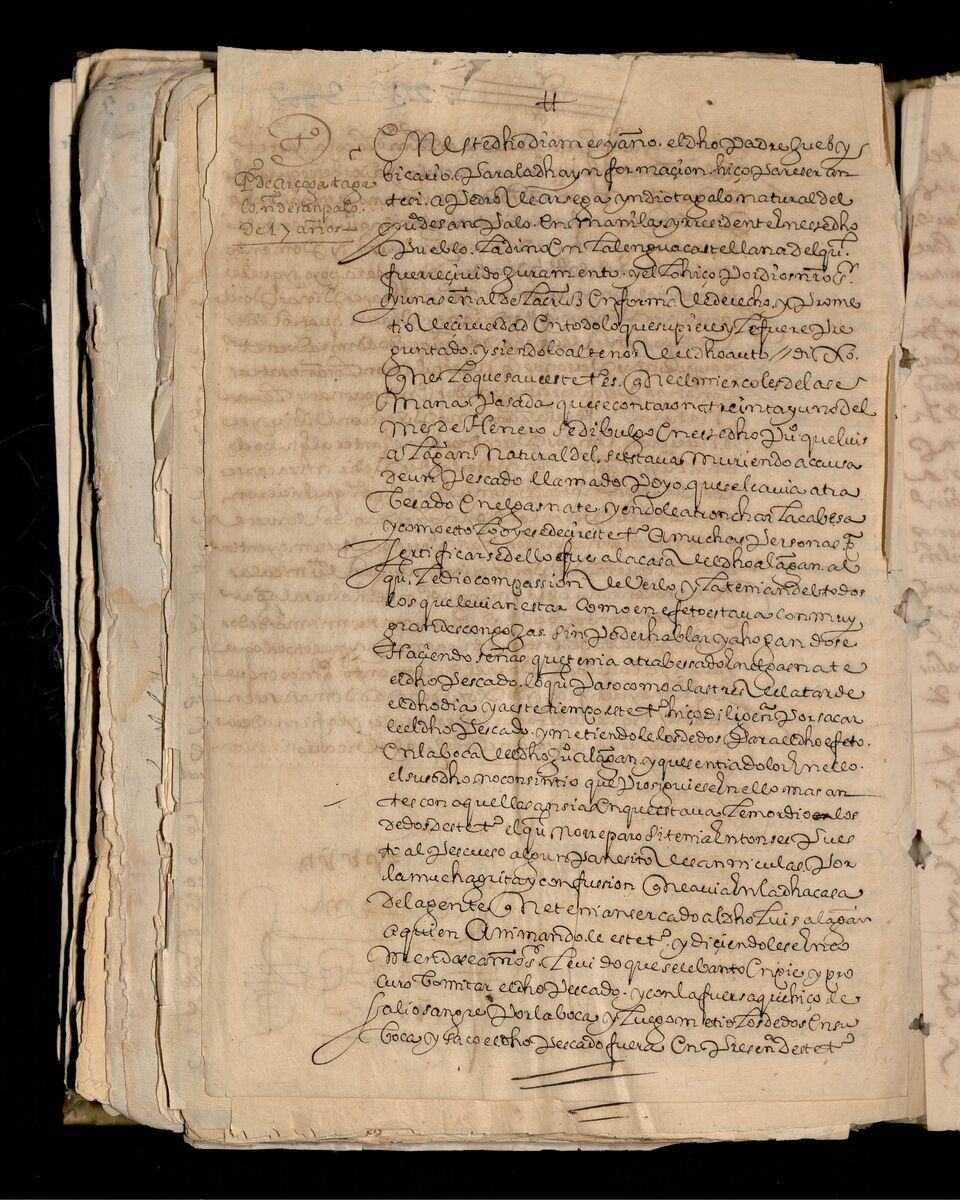 En este dho dia mes y año. el dho Padre Juez y
bicario. Para la dha ynformaçion. hiço Pareser an
te si. a Pedro de Arsega yndio tagalo natural del
pu.º de san Palo. En Manila, y rresidente en este dho
Pueblo. Ladino En La lengua castellana del qu.
fue rreçivido juramento. y el Lo hiço Por dios nro Sr
y una señal de La crus En forma de derecho, y Prome
tio deçir verdad En todo lo que supiere y Le fuere Pre
guntado. y siendolo al tenor del dho auto // dixo.
Que Lo que save este tº es. Que el miercoles de la se
mana Pasada que se contaron treinta y uno del
mes de Henero se dibulgo En este dho Puº que luis
alapan. Natural del, se estava Muriendo a causa
de un Pescado llamado Poyo. que se le avia atra
besado En el gasnate y endole a tronchar La cabesa
y como esto Lo oyese deçir este tº A muchas Personas Pª
sertificarse dello fue a la casa del dho alapan. al
qu. Le dio compassion de Verlo, y La tenian del todos
los que le vian estar como en efeto estava con muy
grandes congojas. sin Poder hablar y ahogandose
Haçiendo señas que tenia atrabessado En el gasnate
el dho Pescado. lo qu. Paso como a las tres de la tarde
el dho dia y a este tiempo este tº hiço diligenª Por sacar
le el dho Pescado. y metiendole los dedos Para el dho efeto.
En la boca del dho Juº alapan y que sentia dolor En ello.
el susodho no consintio que Prosiguiese En ello mas an
tes con aquellas ansias En que estava Le mordio en los
dedos deste tº el qu. No rreparo si tenia Entonses Pues
to al Pescueso algun Panesito de san niculas. Por
la mucha grita y confussion Que avia En la dha casa
De la gente Que tenian sercado al dho Luis alapan
a quien Animando le este tº. y diçiendole se Enco
mendase a nro Sr. Le vido que se lebanto En pie y pro
curo bomitar el dho Pescado. y con la fuersa que hiço le
salio sangre Por la boca y Luego metio Los dedos En su
boca y saco el dho Pescado fuera En Presenª deste tº
Pº de Arcega tagal
lo nl de san palo.
de 17 años